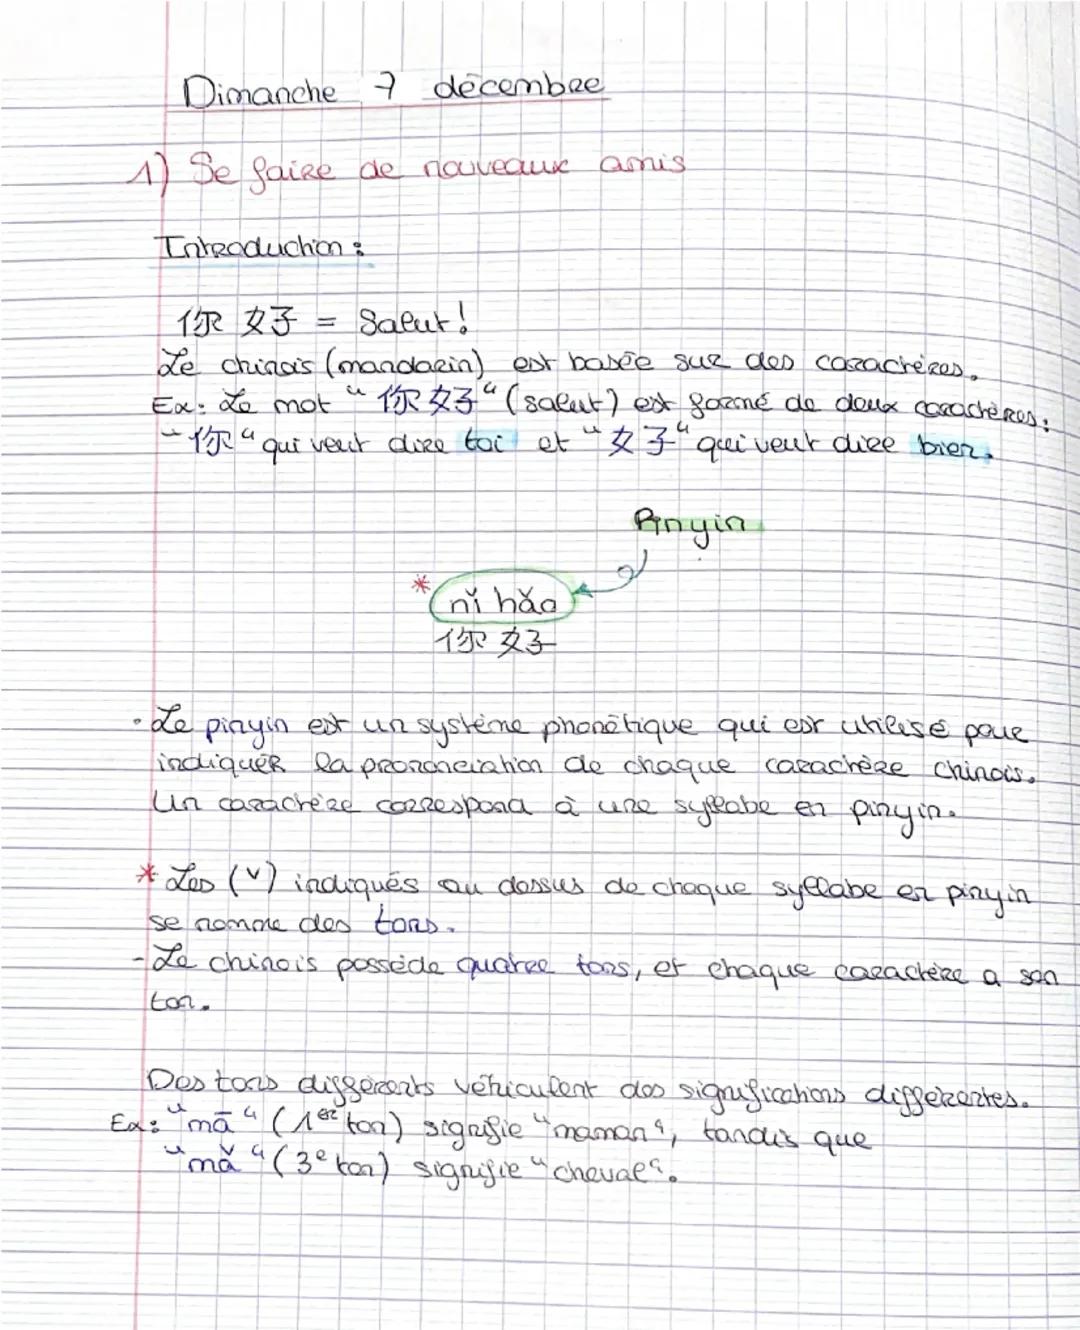 Dimanche 7 décembre
1) Se faire de nouveaux amis
Introduction :
你 好 = Salut !
Le chinois (mandarin) est basée sur des caractères.
Ex: Le mot "你 好" (salut) est formé de deux caractères:
"你" qui veut dire toi et "好" qui veut dire bien.
Pinyin
* nǐ hǎo
你 好
• Le pinyin est un système phonétique qui est utilisé pour
indiquer la prononciation de chaque caractère chinois.
Un caractère correspond à une syllabe en pinyin.
* Les (ˇ) indiqués au dessus de chaque syllabe en pinyin
se nomme des tons.
- Le chinois possède quatre tons, et chaque caractère a son
ton.
Des tons différents véhiculent des significations différentes.
Ex: "mā" (1er ton) signifie "maman", tandis que
"mǎ" (3e ton) signifie "cheval".